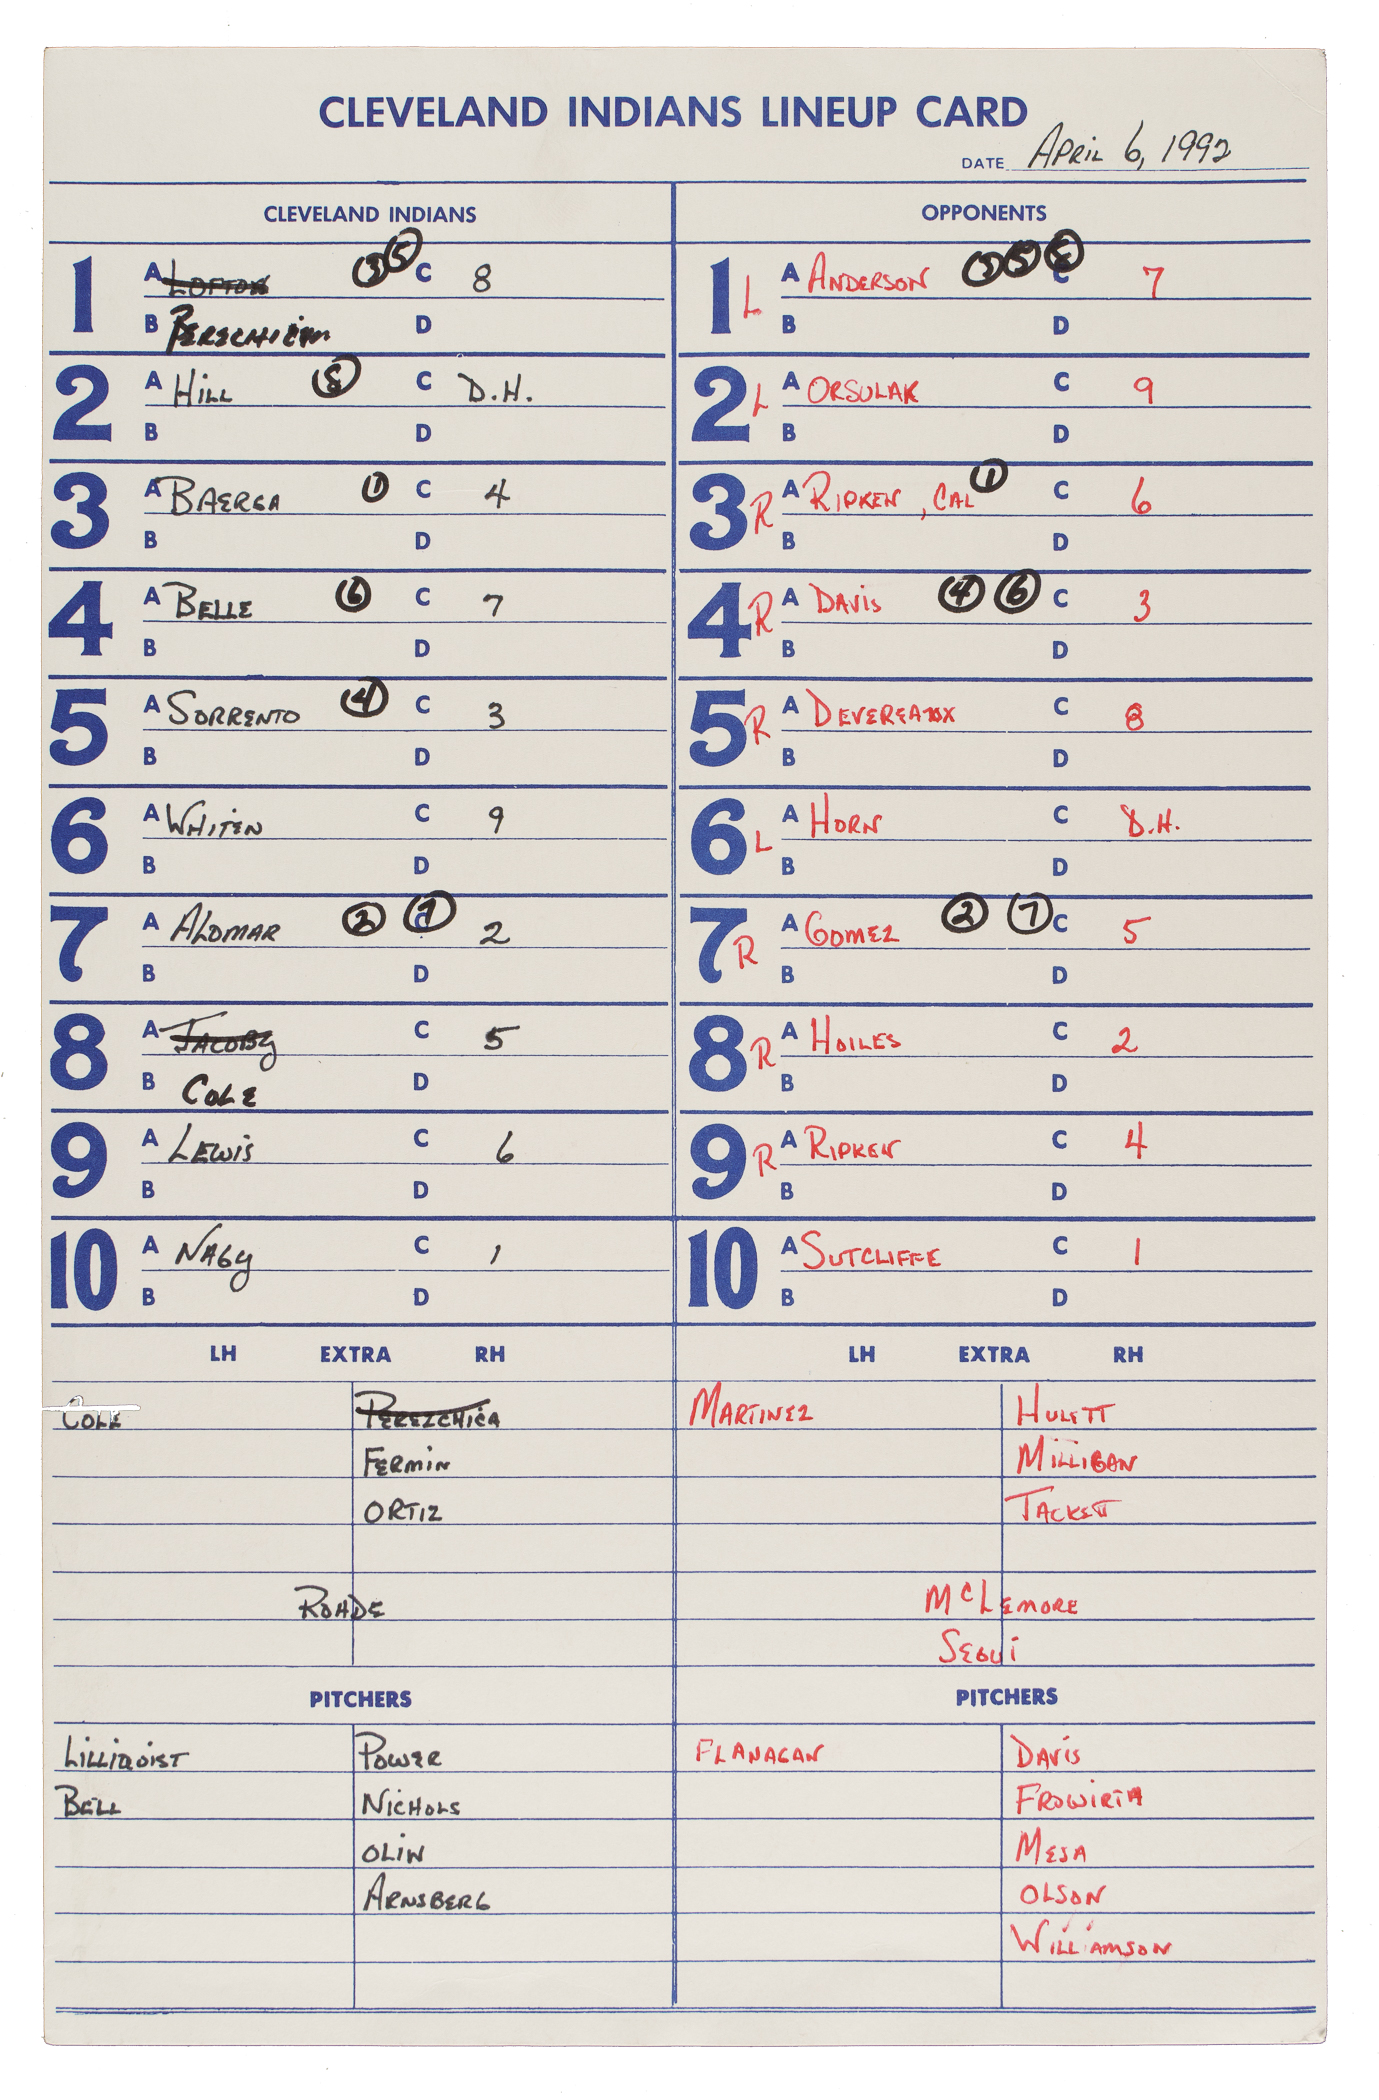 CLEVELAND INDIANS LINEUP CARD
DATE APRIL 6, 1992
CLEVELAND INDIANS
OPPONENTS
1 A LOFTON 3 5 C 8
B PEREZCHICA D
2 A HILL 8 C D.H.
B D
3 A BAERGA 1 C 4
B D
4 A BELLE 6 C 7
B D
5 A SORRENTO 4 C 3
B D
6 A WHITEN C 9
B D
7 A ALOMAR 2 7 C 2
B D
8 A JACOBY C 5
B COLE D
9 A LEWIS C 6
B D
10 A NAGY C 1
B D
1 L A ANDERSON 3 5 8 C 7
B D
2 L A ORSULAK C 9
B D
3 R A RIPKEN, CAL 1 C 6
B D
4 R A DAVIS 4 6 C 3
B D
5 R A DEVEREAUX C 8
B D
6 L A HORN C D.H.
B D
7 R A GOMEZ 2 7 C 5
B D
8 R A HOILES C 2
B D
9 R A RIPKEN C 4
B D
10 A SUTCLIFFE C 1
B D
LH EXTRA RH
COLE PEREZCHICA
FERMIN
ORTIZ
ROHDE
PITCHERS
LILLIQUIST POWER
BELL NICHOLS
OLIN
ARNSBERG
LH EXTRA RH
MARTINEZ HULETT
MILLIGAN
TACKETT
McLEMORE
SEGUI
PITCHERS
FLANAGAN DAVIS
FROWIRTH
MESA
OLSON
WILLIAMSON